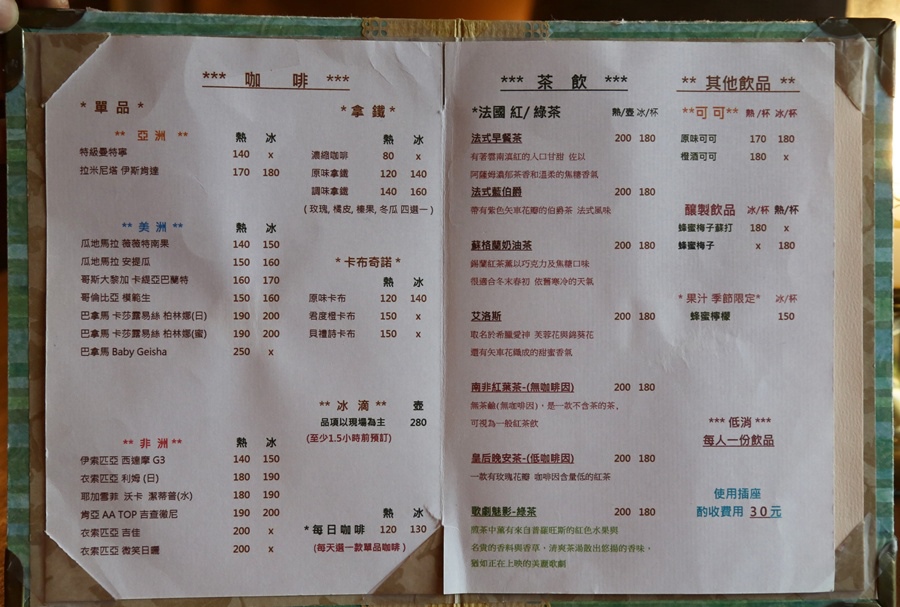 *** 咖 啡 ***
* 單 品 *
** 亞 洲 ** 熱 冰
特級曼特寧 140 x
拉米尼塔 伊斯肯達 170 180
** 美 洲 ** 熱 冰
瓜地馬拉 薇薇特南果 140 150
瓜地馬拉 安提瓜 150 160
哥斯大黎加 卡緹亞巴蘭特 160 170
哥倫比亞 模範生 150 160
巴拿馬 卡莎露易絲 柏林娜(日) 190 200
巴拿馬 卡莎露易絲 柏林娜(蜜) 190 200
巴拿馬 Baby Geisha 250 x
** 非 洲 ** 熱 冰
伊索匹亞 西達摩 G3 140 150
衣索匹亞 利姆 (日) 180 190
耶加雪菲 沃卡 潔蒂普(水) 180 190
肯亞 AA TOP 吉查徹尼 190 200
衣索匹亞 吉佳 200 x
衣索匹亞 微笑日曬 200 x
* 拿 鐵 *
熱 冰
濃縮咖啡 80 x
原味拿鐵 120 140
調味拿鐵 140 160
( 玫瑰, 橘皮, 榛果, 冬瓜 四選一 )
* 卡布奇諾 *
熱 冰
原味卡布 120 140
君度橙卡布 150 x
貝禮詩卡布 150 x
** 冰 滴 ** 壺
品項以現場為主 280
(至少1.5小時前預訂)
* 每日咖啡 熱 冰
120 130
(每天選一款單品咖啡 )
*** 茶 飲 ***
*法國 紅/ 綠茶 熱/壺 冰/杯
法式早餐茶 200 180
有著雲南滇紅的入口甘甜 佐以
阿薩姆濃郁茶香和溫柔的焦糖香氣
法式藍伯爵 200 180
帶有紫色矢車花瓣的伯爵茶 法式風味
蘇格蘭奶油茶 200 180
錫蘭紅茶薰以巧克力及焦糖口味
很適合冬末春初 依舊寒冷的天氣
艾洛斯 200 180
取名於希臘愛神 芙蓉花與錦葵花
還有矢車花織成的甜蜜香氣
南非紅葉茶-(無咖啡因) 200 180
無茶鹼(無咖啡因)，是一款不含茶的茶，
可視為一般紅茶飲
皇后晚安茶-(低咖啡因) 200 180
一款有玫瑰花瓣 咖啡因含量低的紅茶
歌劇魅影-綠茶 200 180
此茶中薰有來自普羅旺斯的紅色水果與
名貴的香料與香草，清爽茶湯散出悠揚的香味，
猶如正在上映的美麗歌劇
** 其他飲品 **
**可 可** 熱 /杯 冰/杯
原味可可 170 180
橙酒可可 180 x
釀製飲品 冰/杯 熱/杯
蜂蜜梅子蘇打 180 x
蜂蜜梅子 x 180
* 果汁 季節限定* 冰/杯
蜂蜜檸檬 150
*** 低消 ***
每人一份飲品
使用插座
酌收費用 30元